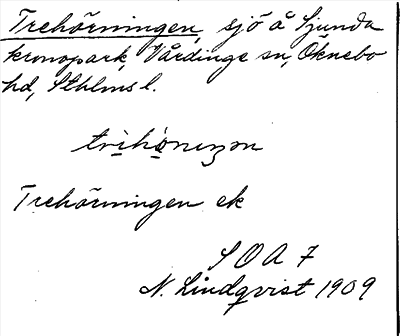 Trehörningen, sjö å Sjunda
kronopark, Vårdinge sn, Öknebo
hd, Sthlms l.
Trehörningen ek
S O A 7
N. Lindqvist 1909